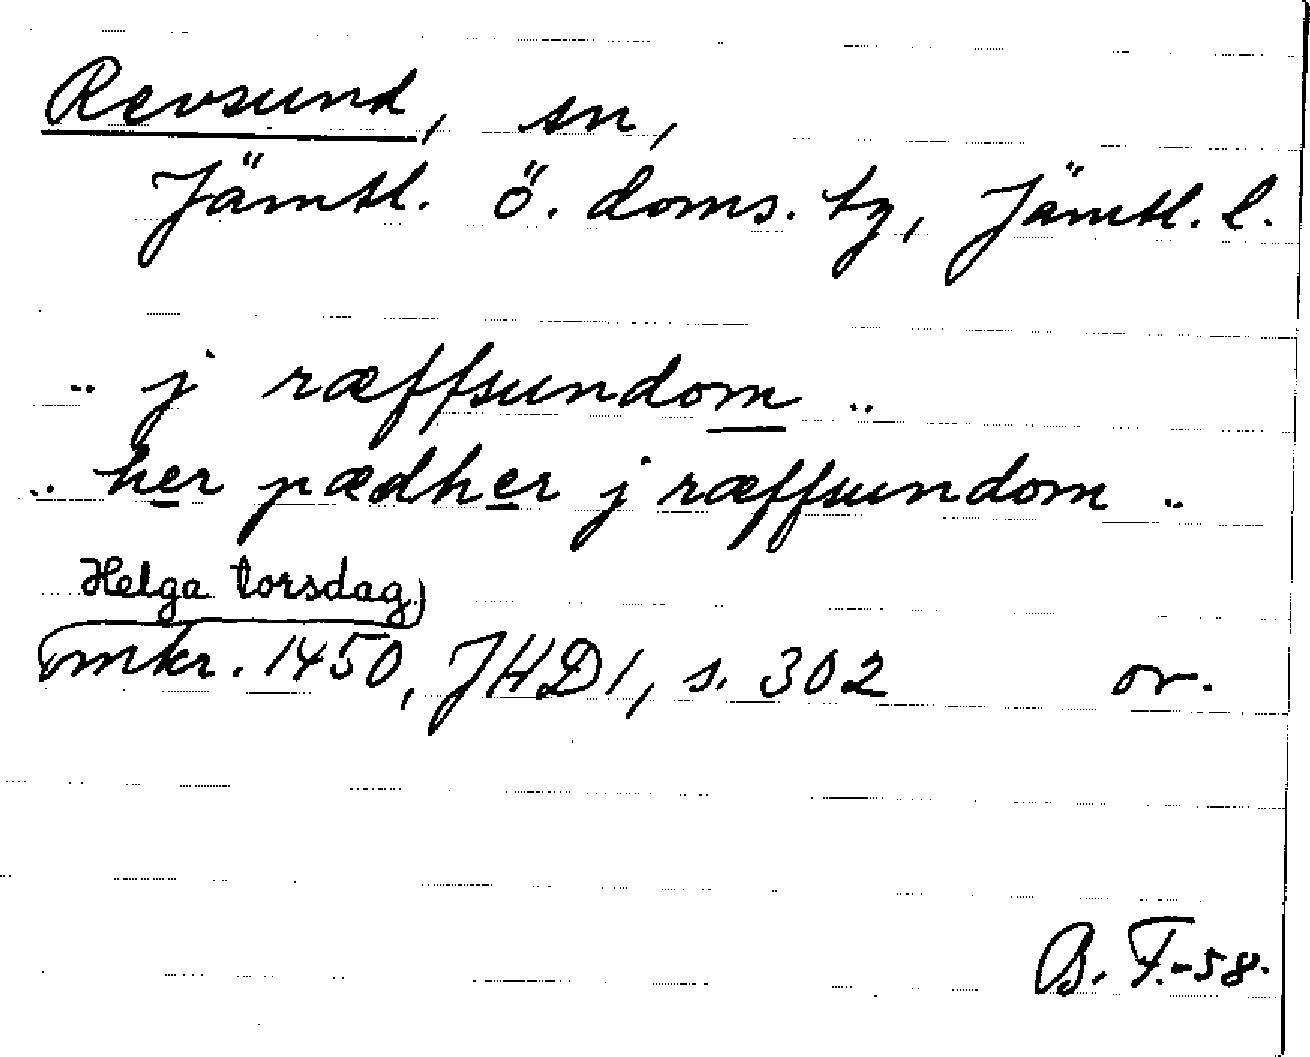 Revsund, sn,
Jämtl. ö. doms. tg, Jämtl. l.
.. j ræffsundom ..
.. her pædher j ræffsundom ..
Helga torsdag)
omkr. 1450, JHD 1, s. 302 or.
B. F.-58.